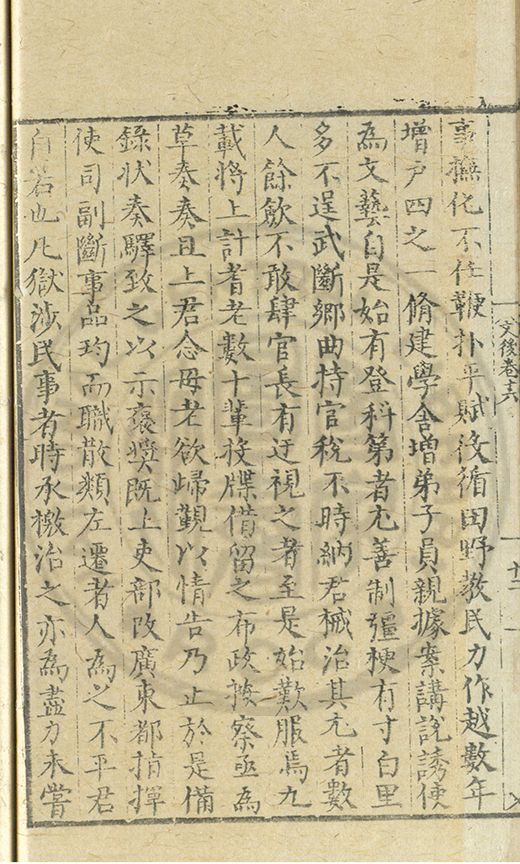 文後卷十六
十二
事撫化不任鞭扑平賦役循田野教民力作越數年
增戶四之一脩建學舍增弟子員親據案講說誘使
為文藝自是始有登科第者尤善制彊梗有寸白里
多不逞武斷鄉曲持官稅不時納君械治其尤者數
人餘歛不敢肆官長有迂視之者至是始歎服焉九
載將上計耆老數十輩投牒借留之布政按察亟為
草奏奏且上君念母老欲歸覲以情告乃止於是備
錄狀奏驛致之以示褒獎既上吏部改廣東都指揮
使司副斷事品均而職散類左遷者人為之不平君
自若也凡獄涉民事者時承檄治之亦為盡力未嘗